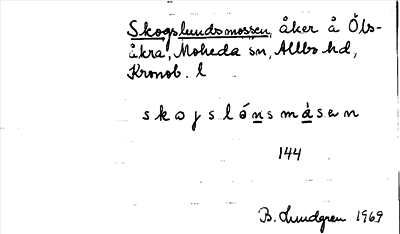 Skogslundsmossen, åker å Öls-
åkra, Moheda sn, Allbo hd,
Kronob. l
skogslónsmåsen
144
B. Lundgren 1969